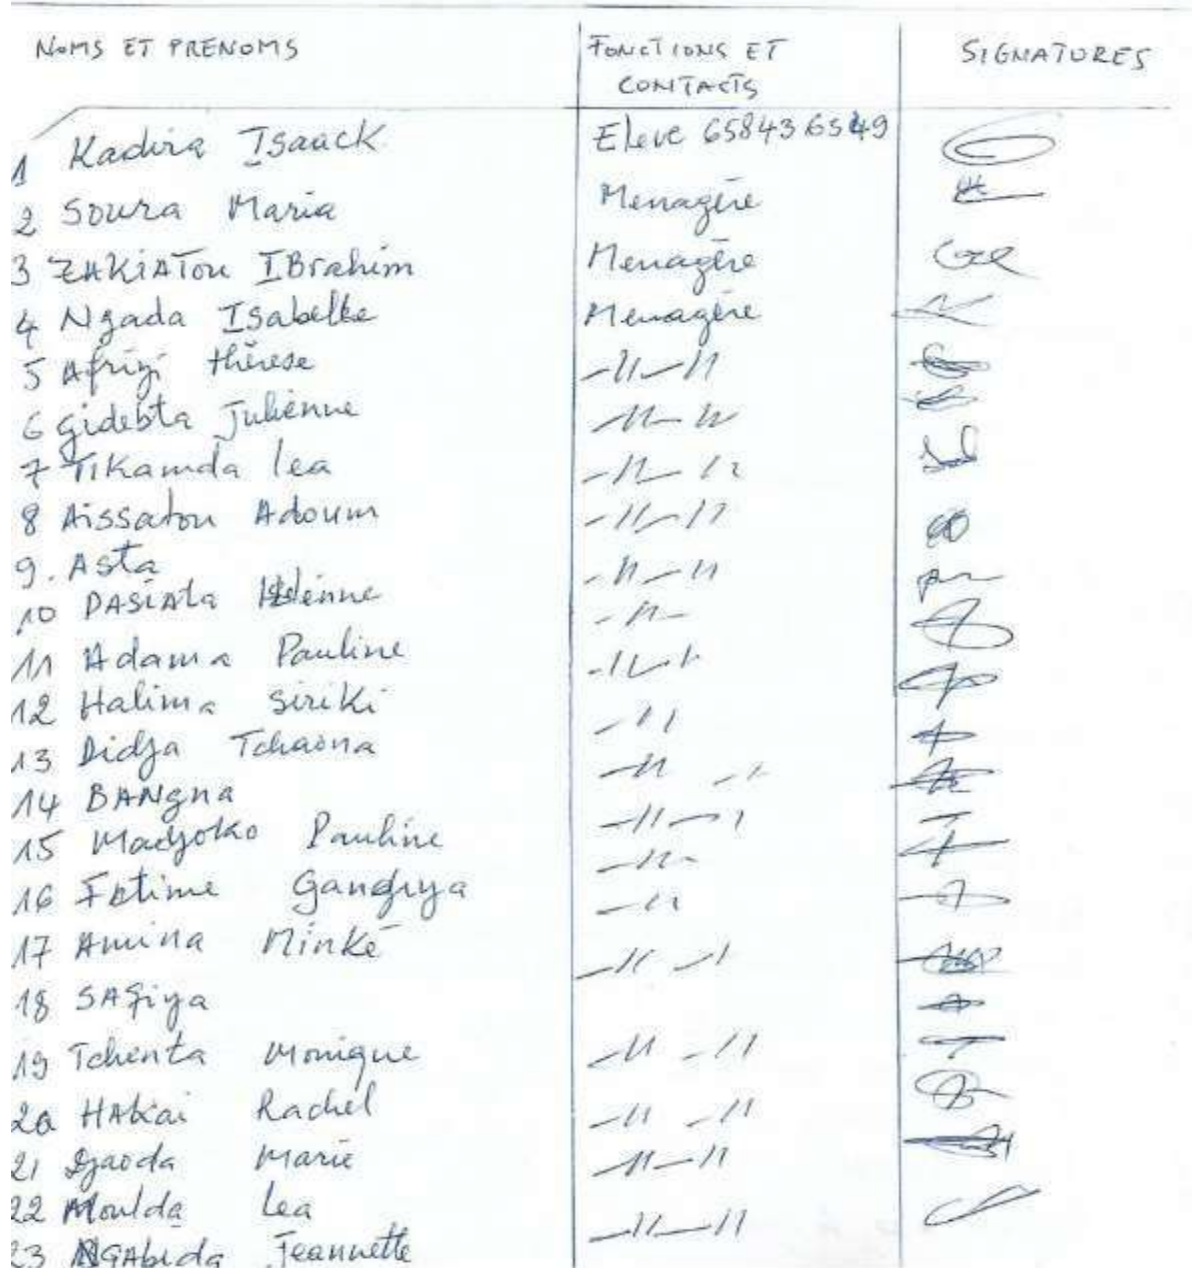 NOMS ET PRENOMS FONCTIONS ET CONTACTS SIGNATURES
1 Kadira Isaack Eleve 658436549
2 Soura Maria Menagère
3 ZAKIATou IBrahim Menagère
4 Ngada Isabelle Menagère
5 Afrizi thérese -11-11
6 gidebta Julienne -11-11
7 Tikamda lea -11-11
8 Aissatou Adoum -11-11
9. Asta -11-11
10 DASIATa -11-
11 Adama Pauline -11-1
12 Halima siriki -11
13 Didja Tchaona -11 -1
14 BANgna -11-1
15 Madjoko Pauline -11-
16 Fatime Gandiya -11
17 Amina Minké -11-1
18 SAfiya
19 Tchenta Monique -11-11
20 HAkai Rachel -11-11
21 Djaoda Marie -11-11
22 Moulda Lea -11-11
23 NGAbida Jeannette